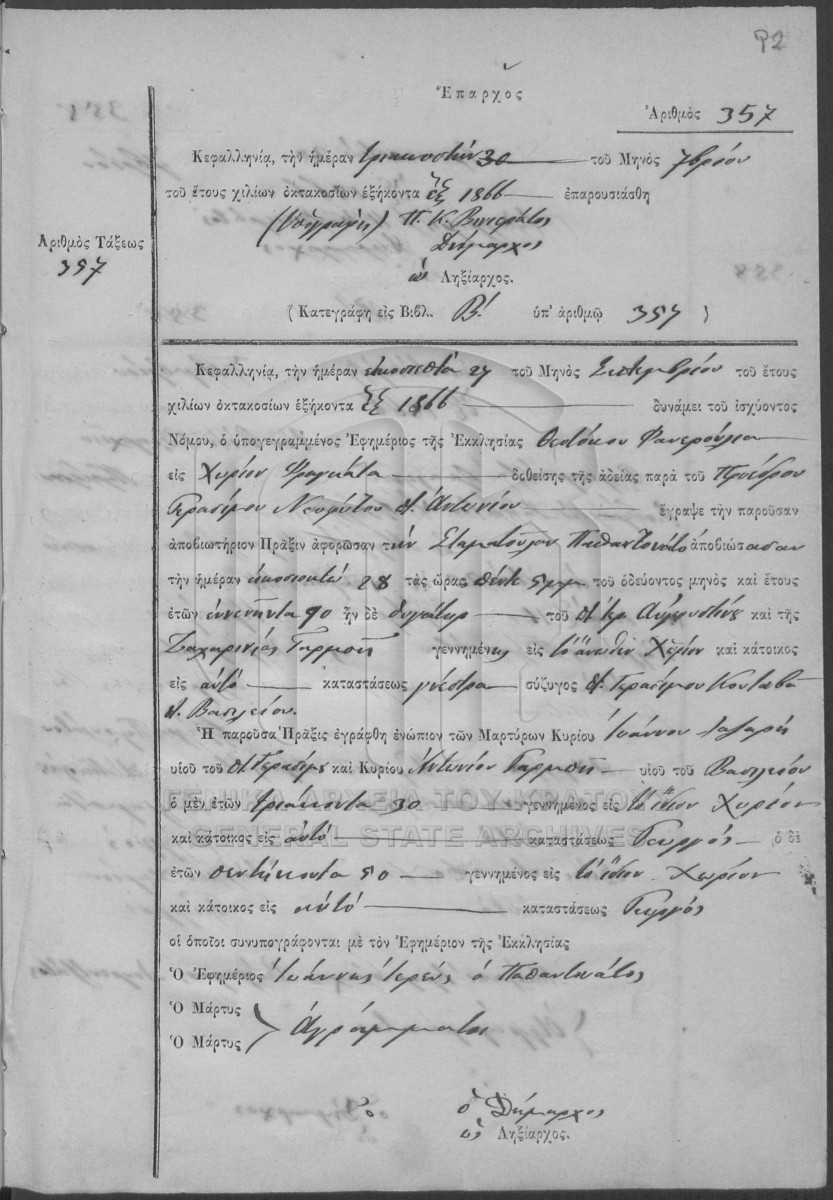 92
Ἔπαρχος
Ἀριθμὸς 357
Κεφαλληνίᾳ, τὴν ἡμέραν τριακοστὴν 30 τοῦ Μηνὸς 7βρίου
τοῦ ἔτους χιλίων ὀκτακοσίων ἑξήκοντα ἕξ 1866 ἐπαρουσιάσθη
(Ὑπογραφὴ) Π. Κ.
Δήμαρχος
ὡς Ληξίαρχος.
Ἀριθμὸς Τάξεως
357
(Κατεγράφη εἰς Βιβλ. Β! ὑπ' ἀριθμῷ 357)
Κεφαλληνίᾳ, τὴν ἡμέραν 27 τοῦ Μηνὸς Σεπτεμβρίου τοῦ ἔτους
χιλίων ὀκτακοσίων ἑξήκοντα ἕξ 1866 δυνάμει τοῦ ἰσχύοντος
Νόμου, ὁ ὑπογεγραμμένος Ἐφημέριος τῆς Ἐκκλησίας Θεοτόκου
εἰς Χωρίον Φραγκάτα δοθείσης τῆς ἀδείας παρὰ τοῦ Προέδρου
Γερασίμου Ἀντωνίου ἔγραψε τὴν παροῦσαν
ἀποβιωτήριον Πρᾶξιν ἀφορῶσαν τὴν Σταματούλαν ἀποβιώσασαν
τὴν ἡμέραν 28 τὰς ὥρας πέντε 5 τοῦ ὁδεύοντος μηνὸς καὶ ἔτους
ἐτῶν ἐννενήντα 90 ἦν δὲ θυγάτηρ τοῦ καὶ τῆς
γεννημένης εἰς τὸ ἄνωθεν Χωρίον καὶ κάτοικος
εἰς αὐτό καταστάσεως σύζυγος Γερασίμου
Βασιλείου.
Ἡ παροῦσα Πρᾶξις ἐγράφθη ἐνώπιον τῶν Μαρτύρων Κυρίου Ἰωάννου
υἱοῦ τοῦ Γερασίμου καὶ Κυρίου Ἀντωνίου υἱοῦ τοῦ Βασιλείου
ὁ μὲν ἐτῶν τριάκοντα 30 γεννημένος εἰς τὸ ἴδιον Χωρίον
ΓΕΝΙΚΑ ΑΡΧΕΙΑ ΤΟΥ ΚΡΑΤΟΥΣ
καὶ κάτοικος εἰς αὐτό καταστάσεως Γεωργός ὁ δὲ
GENERAL STATE ARCHIVES
ἐτῶν πεντήκοντα 50 γεννημένος εἰς τὸ ἴδιον Χωρίον
καὶ κάτοικος εἰς αὐτό καταστάσεως Γεωργός
οἱ ὁποῖοι συνυπογράφονται μὲ τὸν Ἐφημέριον τῆς Ἐκκλησίας
Ὁ Ἐφημέριος Ἰωάννης Ἱερεύς ὁ Παπαντωνάτος
Ὁ Μάρτυς
Ὁ Μάρτυς } Ἀγράμματοι
ὁ Δήμαρχος
ὡς Ληξίαρχος.